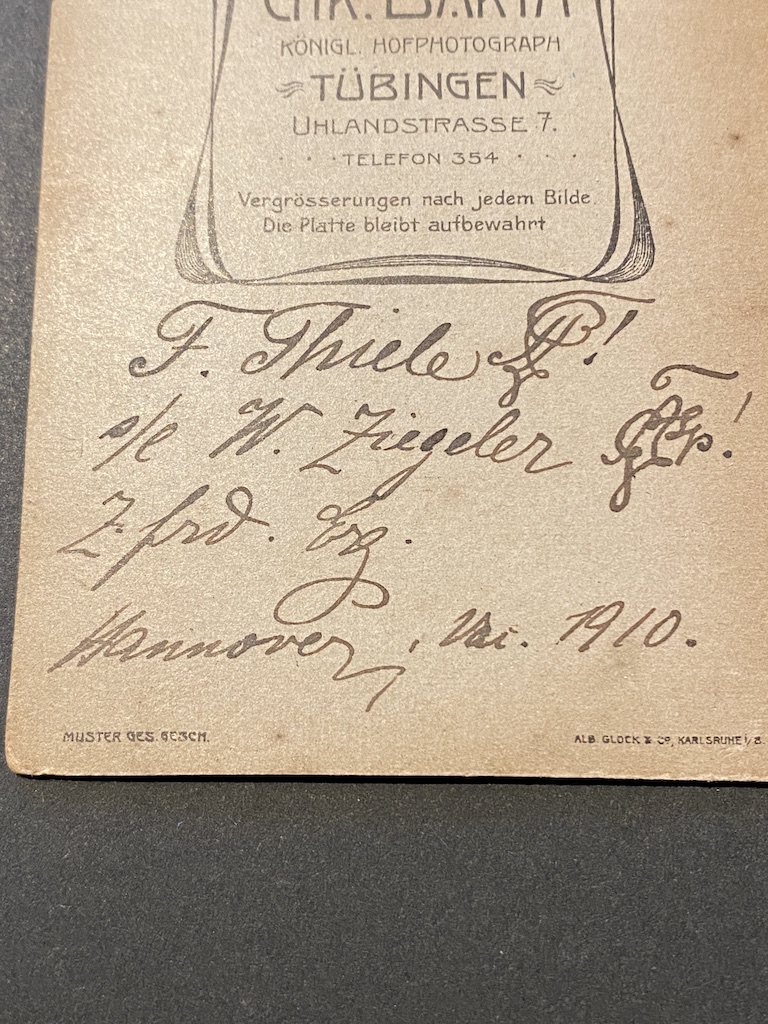 KÖNIGL. HOFPHOTOGRAPH
TÜBINGEN
UHLANDSTRASSE 7.
TELEFON 354
Vergrösserungen nach jedem Bilde.
Die Platte bleibt aufbewahrt
F. Thiele
s/l W. Ziegeler
Z. frd. Erg.
Hannover, Mai. 1910.
MUSTER GES. GESCH.
ALB. GLOCK & Co, KARLSRUHE i/B.